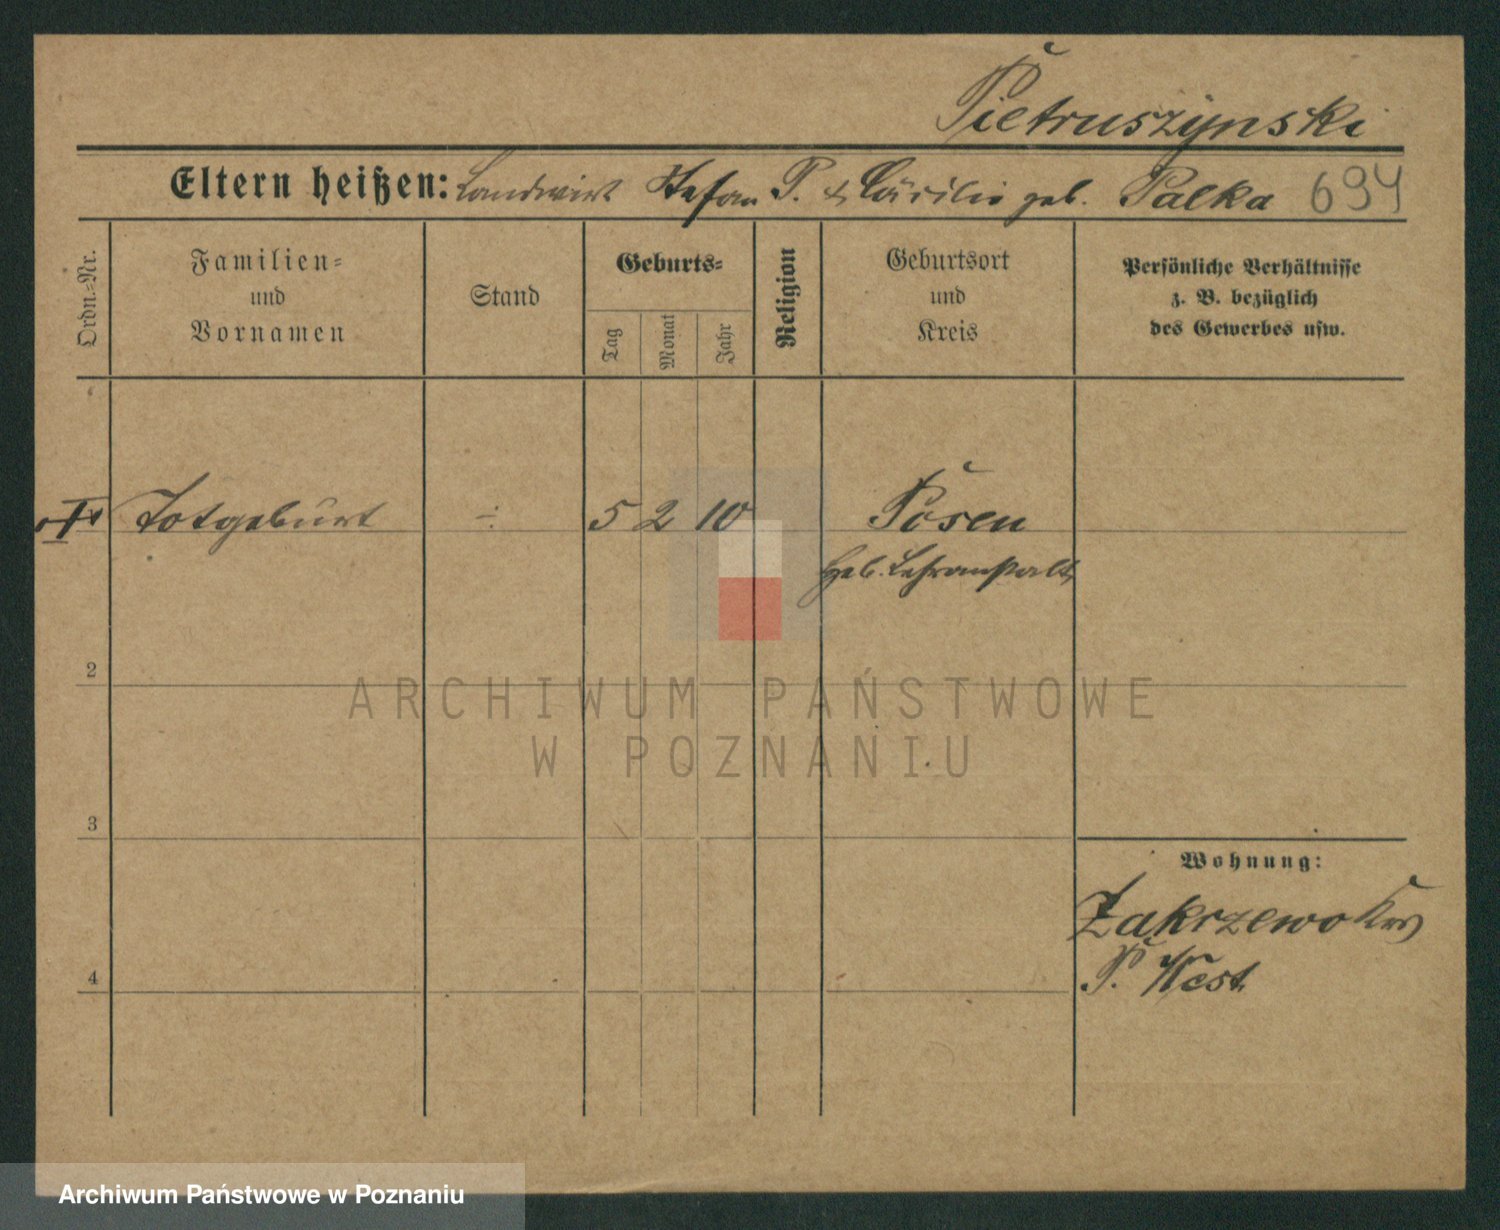 Pietruszynski
Eltern heißen: Landwirt Stefan P. & Cäcilie geb. Palka 694
Ordn.-Nr.
Familien-
und
Vornamen
Stand
Geburts-
Tag
Monat
Jahr
Religion
Geburtsort
und
Kreis
Persönliche Verhältnisse
z. B. bezüglich
des Gewerbes usw.
Totgeburt ÷ 5 2 10 Posen
Heb. Lehranstalt
2
ARCHIWUM PAŃSTWOWE
W POZNANIU
3
Wohnung:
Zakrzewo Krs
P. West.
4
Archiwum Państwowe w Poznaniu